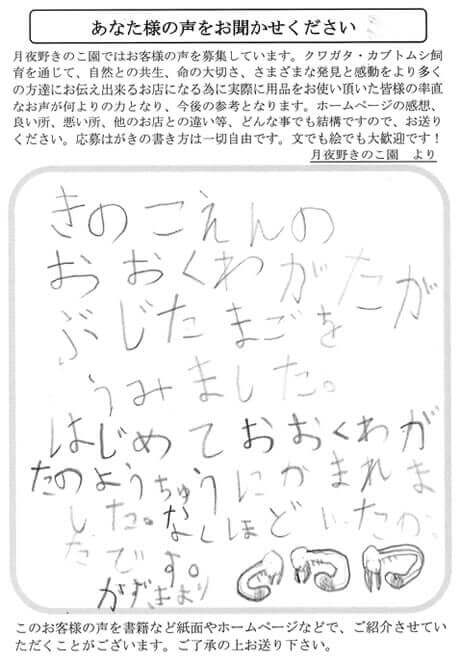 あなた様の声をお聞かせください
月夜野きのこ園ではお客様の声を募集しています。クワガタ・カブトムシ飼
育を通じて、自然との共生、命の大切さ、さまざまな発見と感動をより多く
の方達にお伝え出来るお店になる為に実際に用品をお使い頂いた皆様の率直
なお声が何よりの力となり、今後の参考となります。ホームページの感想、
良い所、悪い所、他のお店との違い等、どんな事でも結構ですので、お送り
ください。応募はがきの書き方は一切自由です。文でも絵でも大歓迎です！
月夜野きのこ園　より
きのこえんの
おおくわがたが
ぶじたまごを
うみました。
はじめておおくわが
たのようちゅうにかまれま
した。なくほどいたか
たです。
かずまより
このお客様の声を書籍など紙面やホームページなどで、ご紹介させてい
ただくことがございます。ご了承の上お送り下さい。